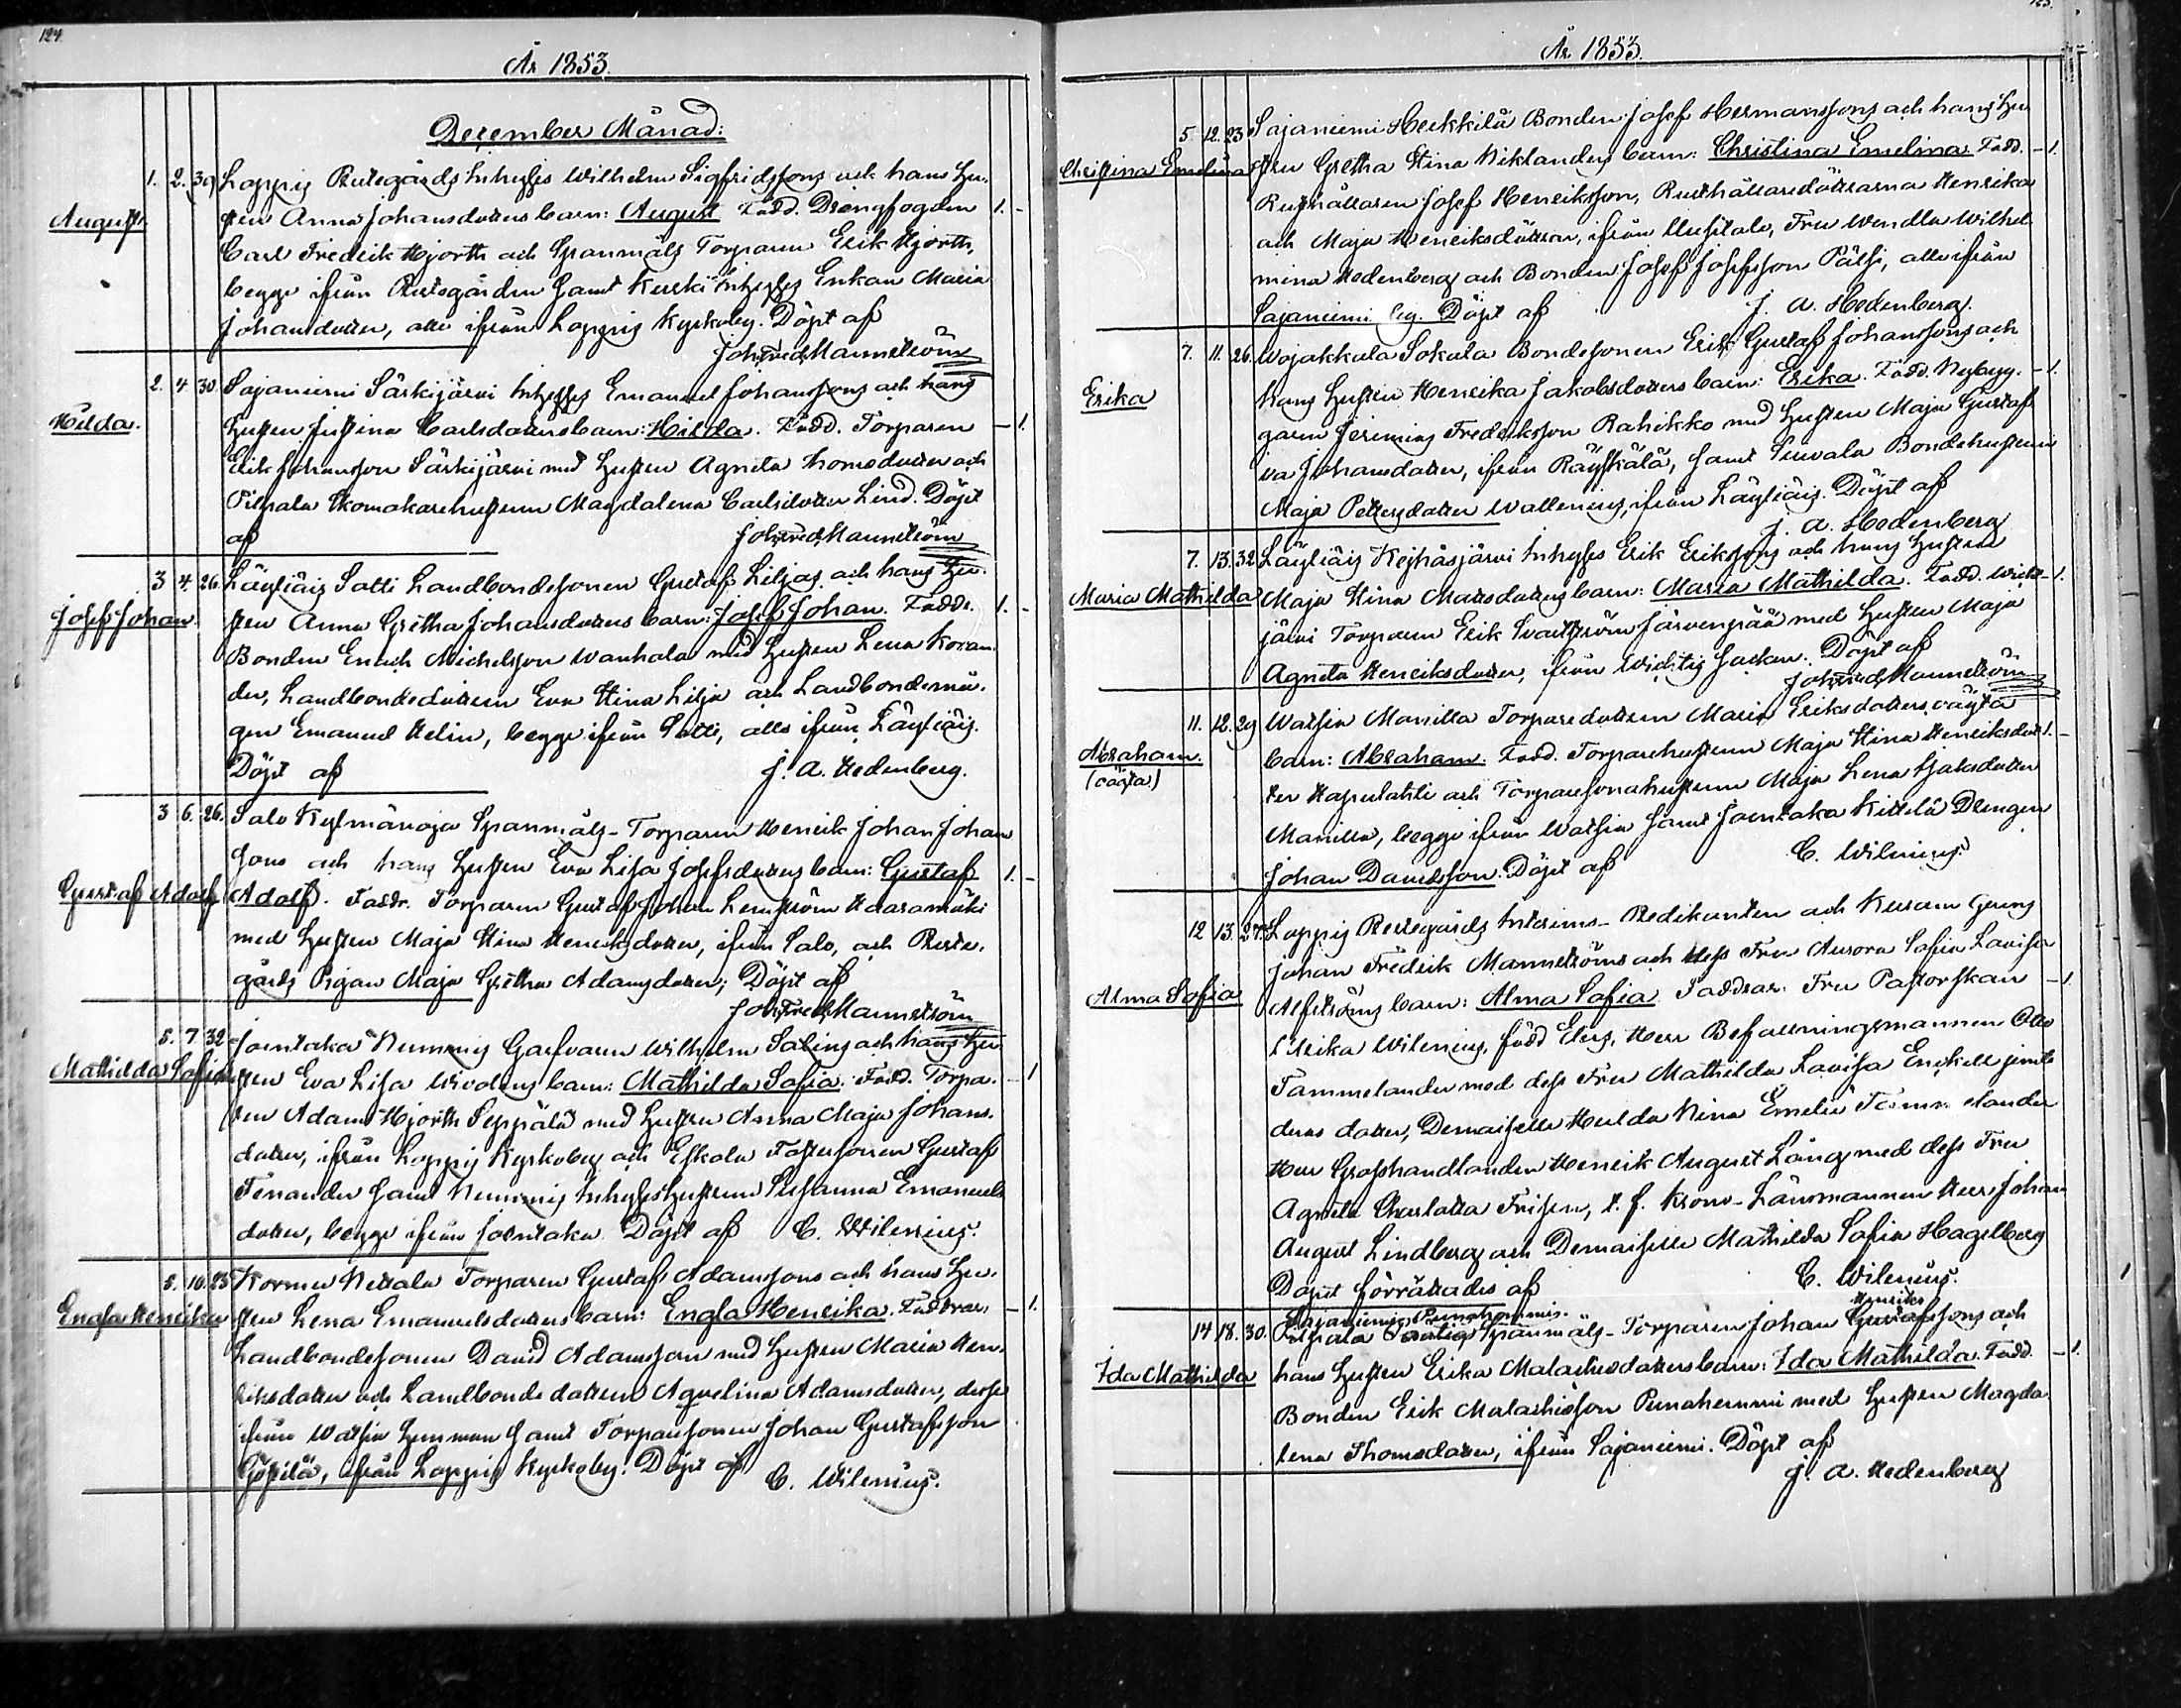 124.
År 1853.
December Månad:
1. 2. 39 Loppis Rutegårds Inhyses Wilhelm Sigfridssons och hans Hu-
August. stru Anna Johansdotters barn: August Fadd. Drängfogden 1. -
Carl Fredrik Hjorth och Spanmåls Torparen Erik Hjorth,
begge ifrån Rutegården samt Kurki Inhyses Enkan Maria
Johansdotter, alle ifrån Loppis Kyrkoby. Döpt af
Joh. Fred. Mannström
2. 4 30. Sajaniemi Särkijärvi Inhyses Emanuel Johanssons och hans
Hilda. Hustru Justina Carlsdotters barn: Hilda. Fadd. Torparen - 1.
Erik Johansson Särkijärvi med Hustru Agneta Thomsdotter och
Pilpala Skomakarehustrun Magdalena Carlsdotter Lind. Döpt
af Joh. Fred. Mannström
3 4. 26. Läyliäis Satti Landbondesonen Gustaf Liljas och hans Hu-
Josef Johan. stru Anna Gretha Johansdotters barn: Josef Johan. Faddr. 1. -
Bonden Enoch Michelsson Wanhala med Hustru Lena Koran-
der, Landbondedottern Eva Stina Lilja och Landbondemå-
gen Emanuel Helin, begge ifrån Satti, alle ifrån Läyliäis.
Döpt af J. A. Hedenberg.
3 6. 26. Salo Kylmänoja Spanmåls-Torparen Henrik Johan Johans
sons och hans Hustru Eva Lisa Josefsdotters barn: Gustaf 1. -
Gustaf Adolf Adolf. Faddr. Torparen Gustaf Johan Lernström Haaramäki
med Hustru Maja Stina Henriksdotter, ifrån Salo, och Rute-
gårds Pigan Maja Gretha Adamsdotter; Döpt af
Joh. Fred. Mannström
5. 7. 32 Joentaka Nummis Garfvaren Wilhelm Salins och hans Hu-
Mathilda Sofia stru Eva Lisa Wivolins barn: Mathilda Sofia. Fadd. Torpa- - 1
ren Adam Hjorth Seppälä med Hustru Anna Maja Johans-
dotter, ifrån Loppis Kyrkoby och Eskola Fostersonen Gustaf
Tenander samt Nummis Inhyseshustrun Susanna Emanuels
dotter, begge ifrån Joentaka. Döpt af C. Wilenius.
5. 10. 25 Kormu Nettala Torparen Gustaf Adamssons och hans Hu-
Engla Henrika stru Lena Emanuelsdotters barn: Engla Henrika. Faddrar, - 1.
Landbondesonen David Adamsson med Hustru Maria Hen-
riksdotter och Landbonde dottern Aqvelina Adamsdotter, desse
ifrån Watsia Hunman samt Torparesonen Johan Gustafsson
Göpilä, ifrån Loppis Kyrkoby. Döpt af C. Wilenius.
År 1853.
5 12. 23 Sajaniemi Heikkilä Bonden Josef Hermanssons och hans Hu
Christina Emelina stru Gretha Stina Niklanders barn: Christina Emelina Fadd. - 1.
Rusthållaren Josef Henriksson, Rusthållaredöttrarna Henrika
och Maja Henriksdöttrar, ifrån Uusitalo, Fru Wendla Wilhel
mina Hedenberg och Bonden Josef Josefsson Pälsi, alle ifrån
Sajaniemi by. Döpt af J. A. Hedenberg.
7. 11. 26. Wojakkala Sokala Bondesonen Erik Gustaf Johanssons och
Erika hans Hustru Henrika Jakobsdotters barn: Erika. Fadd. Nybyg- - 1.
garen Jeremias Fredriksson Rahikko med Hustru Maja Gustaf
va Johansdotter, ifrån Räyskälä, samt Suvala Bondehustrun
Maja Pettersdotter Wallenius, ifrån Läyliäis. Döpt af
J. A. Hedenberg
7. 13. 32 Läyliäis Keihäsjärvi Inhyses Erik Erikssons och hans Hustru
Maria Mathilda Maja Stina Matsdotters barn: Maria Mathilda. Fadd. Wicht- - 1.
järvi Torparen Erik Svartström Järvenpää med Hustru Maja
Agneta Henriksdotter, ifrån Wichtis Socken. Döpt af
Joh. Fred. Mannström
11. 12. 29 Watsia Manilla Torparedottern Maria Eriksdotters oägta
Abraham. barn: Abraham. Fadd. Torparehustrun Maja Stina Henriksdot 1. -
(oägta) ter Haperlahti och Torparesonahustrun Maja Lena Isaksdotter
Manilla, begge ifrån Watsia samt Joentaka Kittelä Drengen
Johan Davidsson. Döpt af C. Wilenius.
12 13. 27. Loppis Rutegårds Interims-Predikanten och Herrn
Johan Fredrik Mannströms och dess Fru Aurora Sofia Lovisa
Alma Sofia Alfströms barn: Alma Sofia. Faddrar. Fru Pastorskan - 1
Ulrika Wilenius, född Elers, Herr Befallningsmannen Otto
Tammelander med dess Fru Mathilda Lovisa Enckell jemte
deras dotter, Demoiselle Hulda Nina Emelie Tammelander
Herr Grosshandlanden Henrik August Lång med dess Fru
Agneta Charlotta Frisen, t. f. Krono-Länsmannen Herr Johan
August Lindberg och Demoiselle Mathilda Sofia Hagelberg
Dopet förrättades af C. Wilenius.
Sajaniemis Punahonnis. Henriks
14 18. 30. Pilpala Spanmåls-Torparen Johan Gustafssons och
Ida Mathilda hans Hustru Erika Malachiedotters barn: Ida Mathilda. Fadd. - 1.
Bonden Erik Malachiasson Penahemmi med Hustru Magda
lena Thomsdotter, ifrån Sajaniemi. Döpt af
J. A. Hedenberg